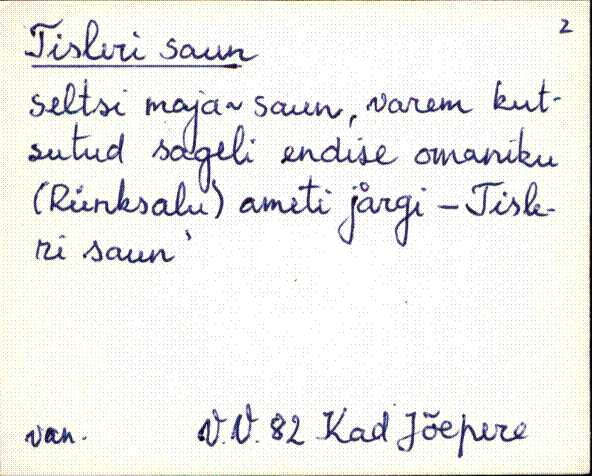 2
Tisleri saun
seltsi maja~ saun, varem kut-
sutud sageli endise omaniku
(Rünksalu) ameti järgi – Tisle-
ri saun'
van. V.V. 82 Kad Jõepere